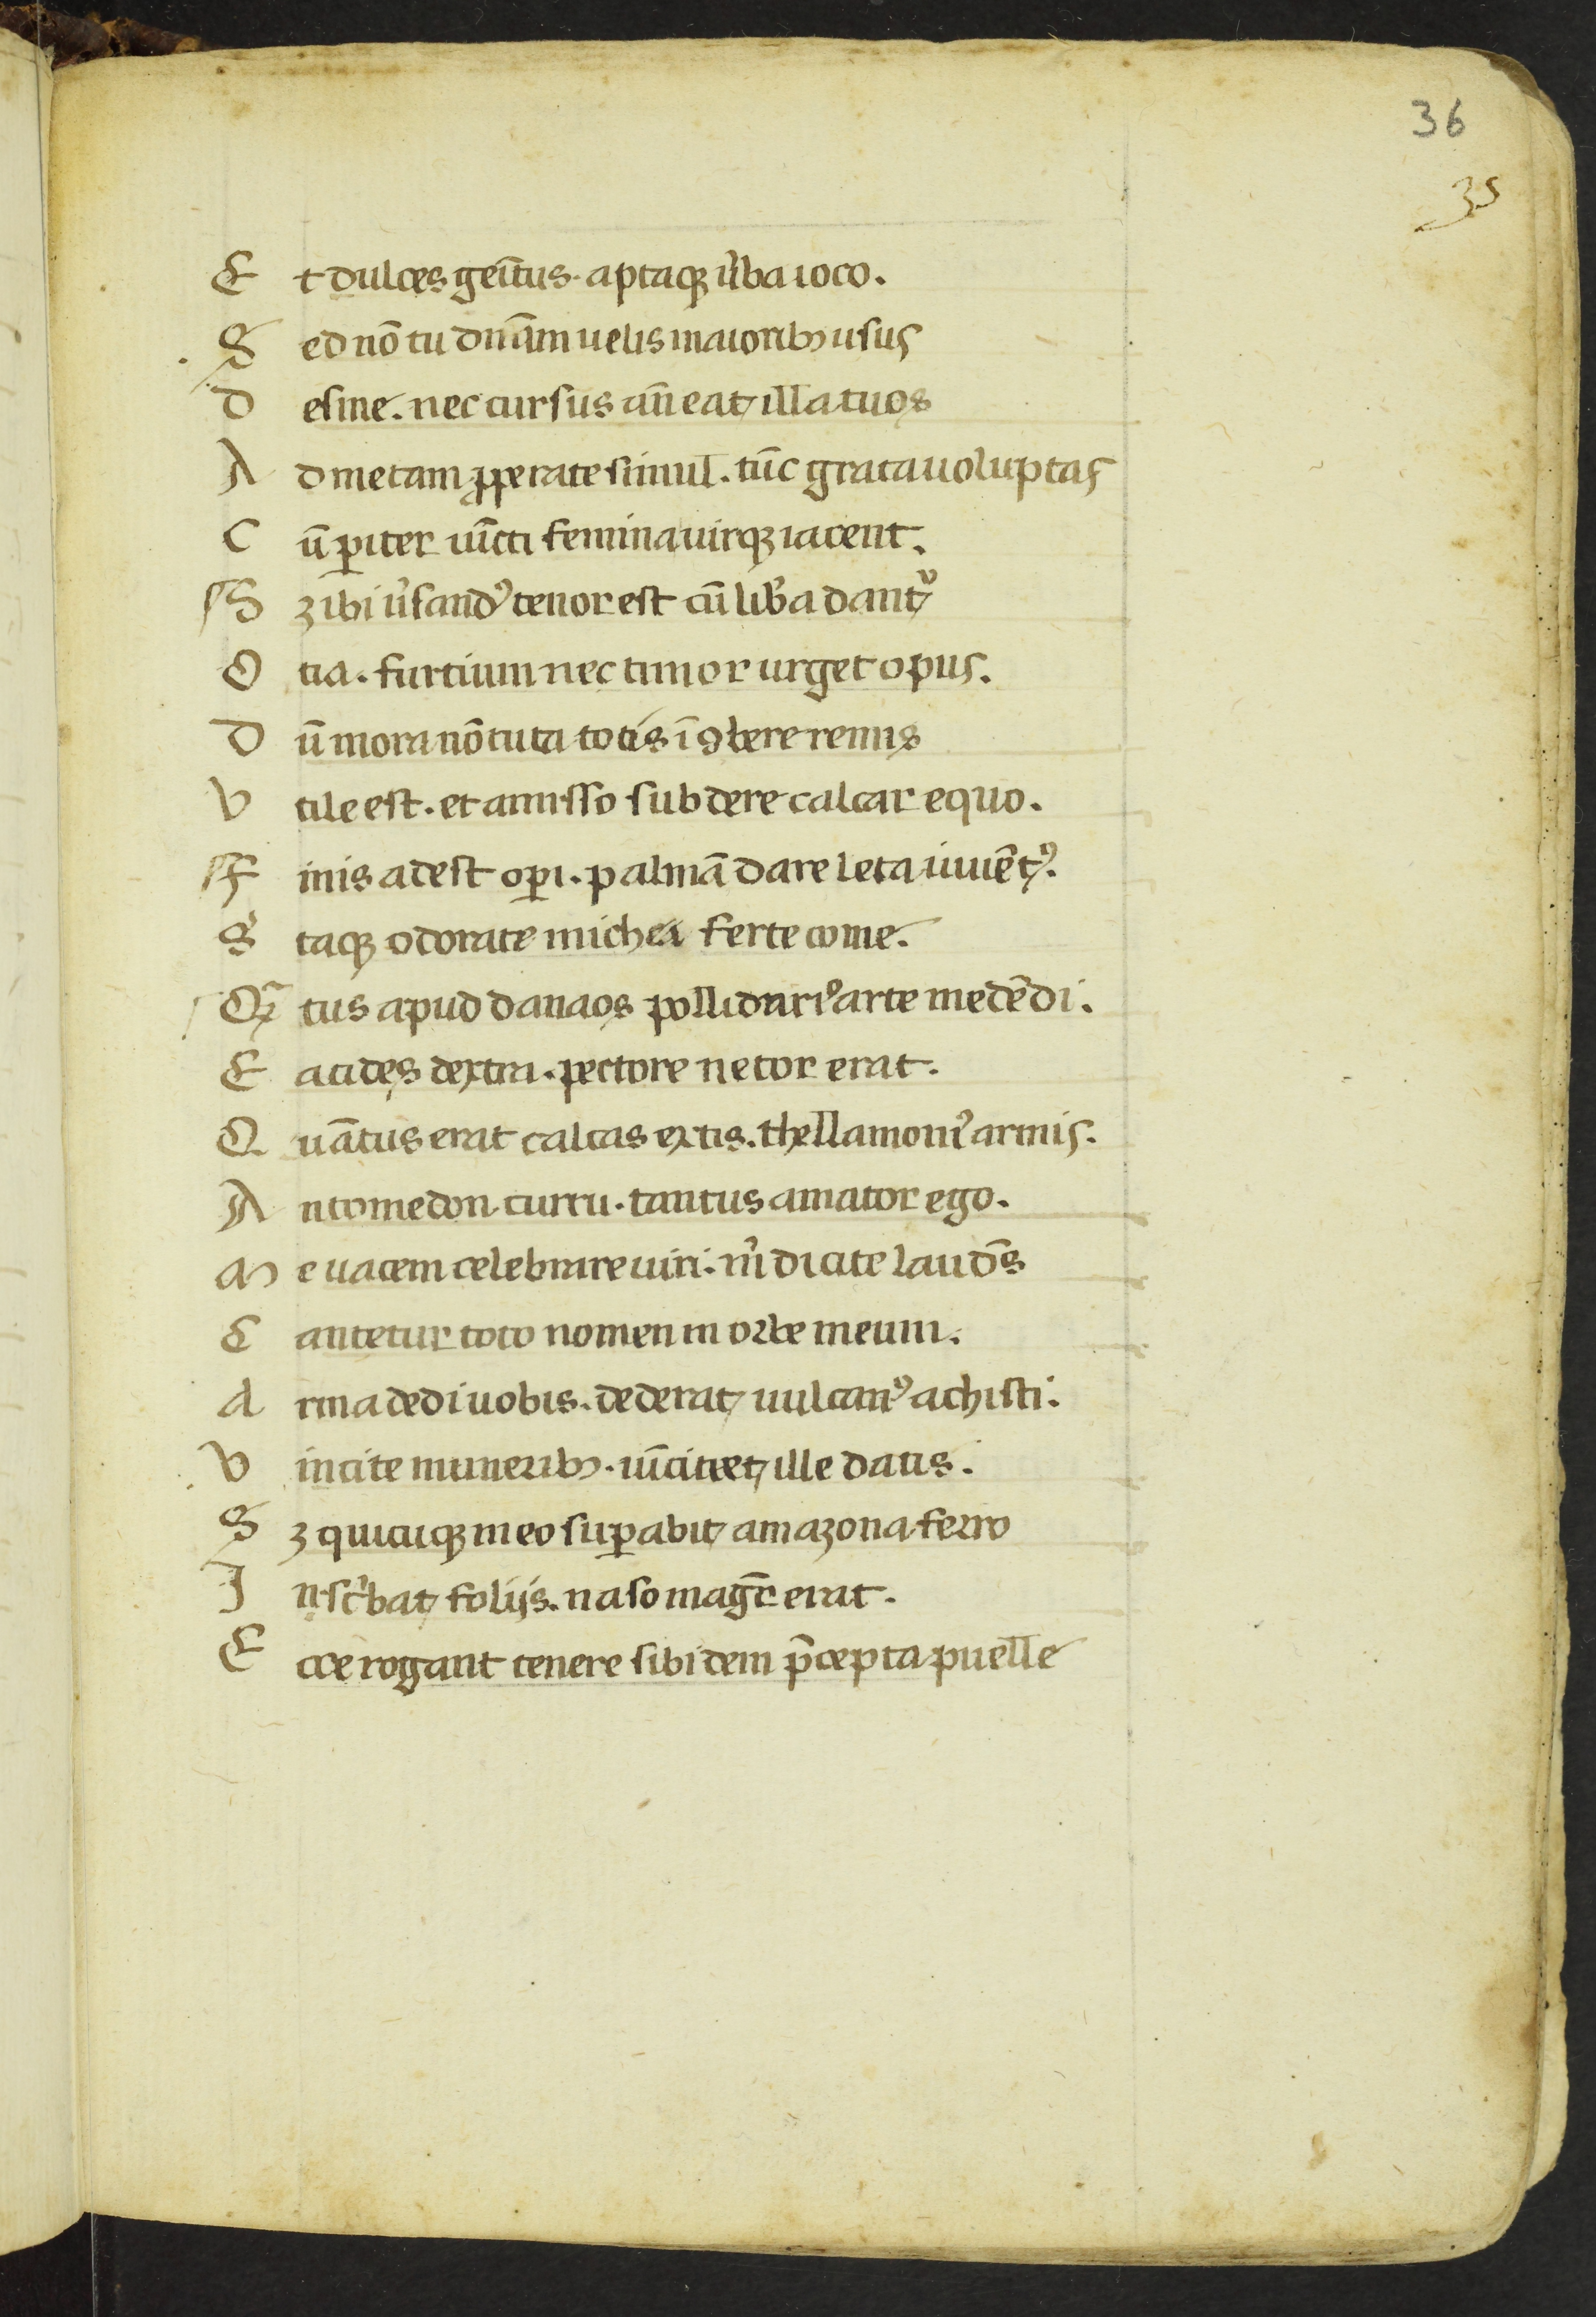 36
35
Et dulces geı̄tus· aptaqꝫ ỦbaIoco.
Sed nō tu dnām uelis maioribꝫ usus
Desine. nec cursus an̄eat illa tuos
Ad metam ꝓperate simul. tūc grata uoluptas
Cū ꝑiter uı̄cti femina uirqꝫ iacent.
Sꝫ ibi ủsandꝰ tenor est cū liba dantꝰ
Otia. furtiuum nec timor urget opus.
Dū mora nō tuta totis ī ꝯbere remis
Vtile est. et amisso subdere calcar equo.
ffinis adest oꝑi. palmā dare leta iuuētꝰ.
Staqꝫ odorate michei ferte come.
Qꝫ̄tus apud danaos pollidariꝰ arte medēdi.
Eacides dextra. pectore netor erat.
Quātus erat calcas extis. thellamonıꝰ armis.
Antomedon curru. tantus amator ego.
Me uacem celebrare uiri. m̉ dicite laudēs
Cantetur toto nomen in orbe meum.
Arma dedi uobis. dederat uulcanꝰ achisti.
Vincite muneribꝫ. uı̄citxet ille datis.
Sꝫ quicuqꝫ meo suꝑabit amazona ferro
Inscᵢbat folijs. naso magr̄ erat.
Ecce rogant tenere sibi dem p̄cepta puelle